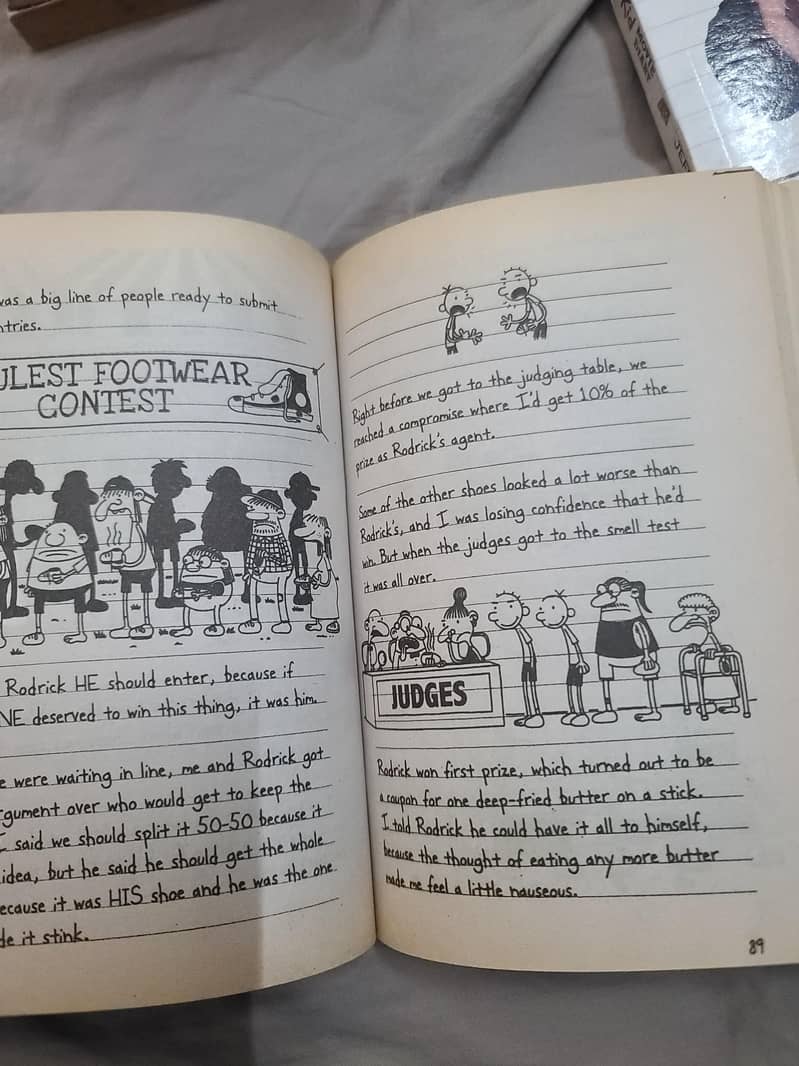 was a big line of people ready to submit
ntries.
ULEST FOOTWEAR
CONTEST
Rodrick HE should enter, because if
NE deserved to win this thing, it was him.
e were waiting in line, me and Rodrick got
rgument over who would get to keep the
I said we should split it 50-50 because it
idea, but he said he should get the whole
ecause it was HIS shoe and he was the one
de it stink.
Right before we got to the judging table, we
reached a compromise where I'd get 10% of the
prize as Rodrick's agent.
Some of the other shoes looked a lot worse than
Rodrick's, and I was losing confidence that he'd
win. But when the judges got to the smell test
it was all over.
JUDGES
Rodrick won first prize, which turned out to be
a coupon for one deep-fried butter on a stick.
I told Rodrick he could have it all to himself,
because the thought of eating any more butter
made me feel a little nauseous.
89
Kid MOVIE
DIARY
JEF